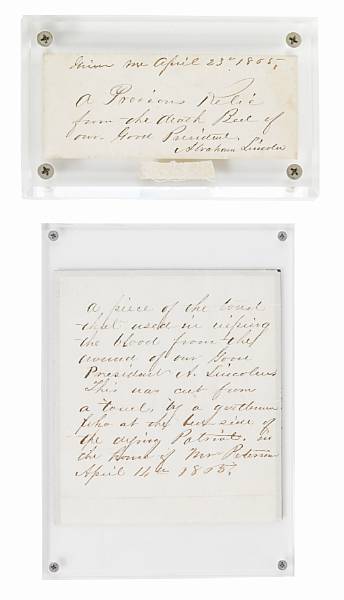 Given me April 23rd 1865,
A Precious Relic
from the death Bed of
our Good President
Abraham Lincoln
a piece of the towel
that used in wiping
the blood from the
wound of our Good
President A. Lincolns
This was cut from
a towel, by a gentleman
who at the bed-side of
the dying Patriot. in
the home of Mr Peterson
April 14th 1865,